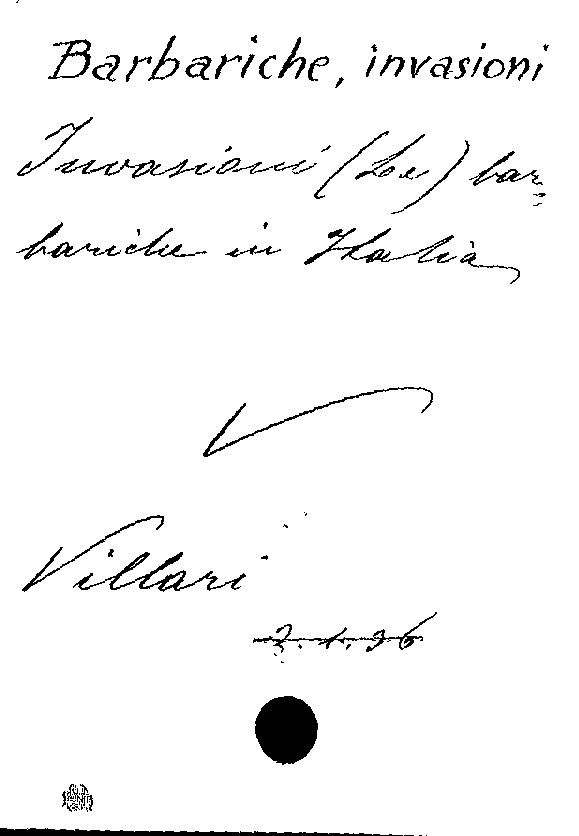 Barbariche, invasioni
Invasioni (Le) bar=
bariche in Italia
V
Villari
2.1.36